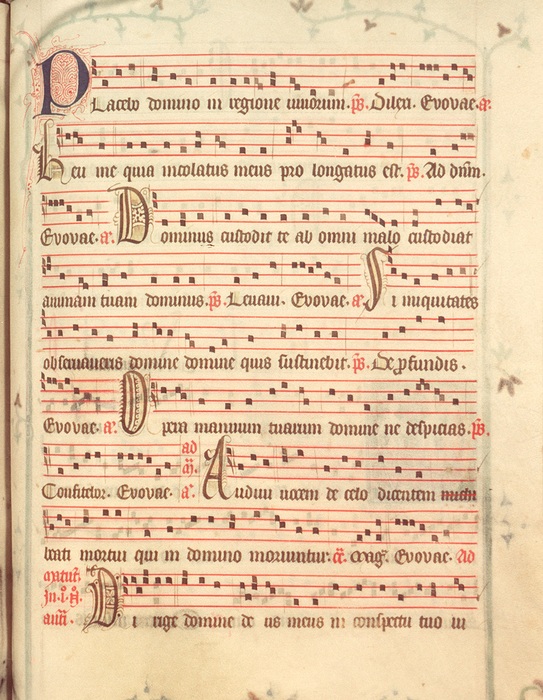 Placebo domino in regione vivorum. ps. Dilexi. Evovae. a.
Heu me quia incolatus meus pro longatus est. ps. Ad dnm.
Evovae. a. Dominus custodit te ab omni malo custodiat
animam tuam dominus. ps. Levavi. Evovae. a. Si iniquitates
observaveris domine domine quis sustinebit. ps. De pfundis.
Evovae. a. Opera manuum tuarum domine ne despicias. ps.
ad
Confitebor. Evovae. a. Audivi vocem de celo dicentem michi
beati mortui qui in domino moriuntur. Mag. Evovae. Ad
matut.
In .i. n.
Dirige domine de us meus in conspectu tuo vi